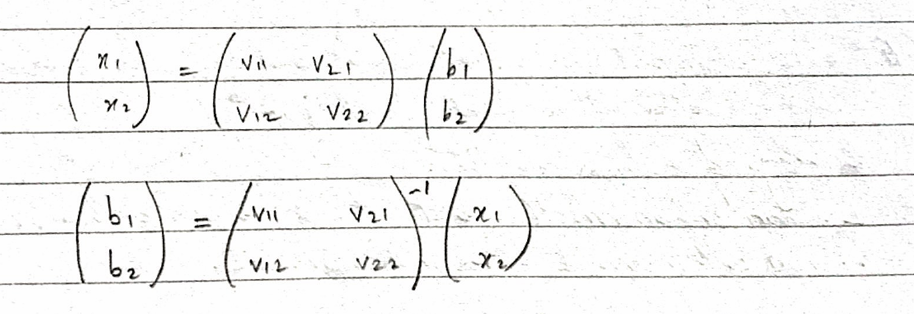 (x1 x2) = (v11 v21 v12 v22) (b1 b2)
(b1 b2) = (v11 v21 v12 v22)^-1 (x1 x2)